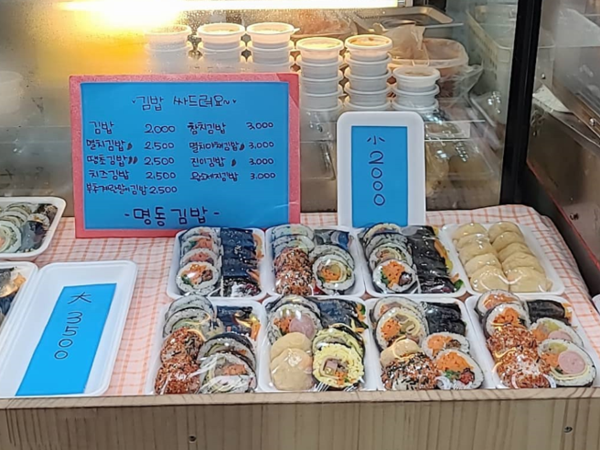 김밥 싸드려요~
김밥 2.000 참치김밥 3.000
멸치김밥 2.500 멸치야채김밥 3.000
땡초김밥 2.500 진미김밥 3.000
치즈김밥 2.500 3.000
2.500
- 명동김밥 -
小 2000
大 3500